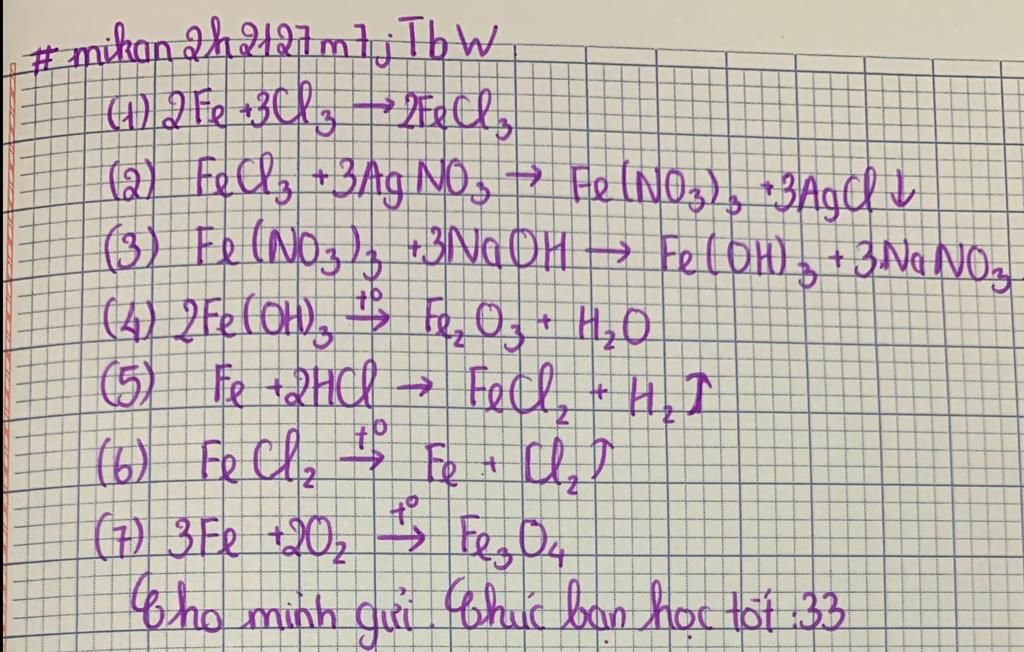 # mikan2h2127m7jTbW
(1) 2Fe + 3Cl₃ → 2FeCl₃
(2) FeCl₃ + 3AgNO₃ → Fe(NO₃)₃ + 3AgCl ↓
(3) Fe(NO₃)₃ + 3NaOH → Fe(OH)₃ + 3NaNO₃
(4) 2Fe(OH)₃ t° → Fe₂O₃ + H₂O
(5) Fe + 2HCl → FeCl₂ + H₂ ↑
(6) FeCl₂ t° → Fe + Cl₂ ↑
(7) 3Fe + 2O₂ t° → Fe₃O₄
Cho mình gửi. Chúc bạn học tốt :33